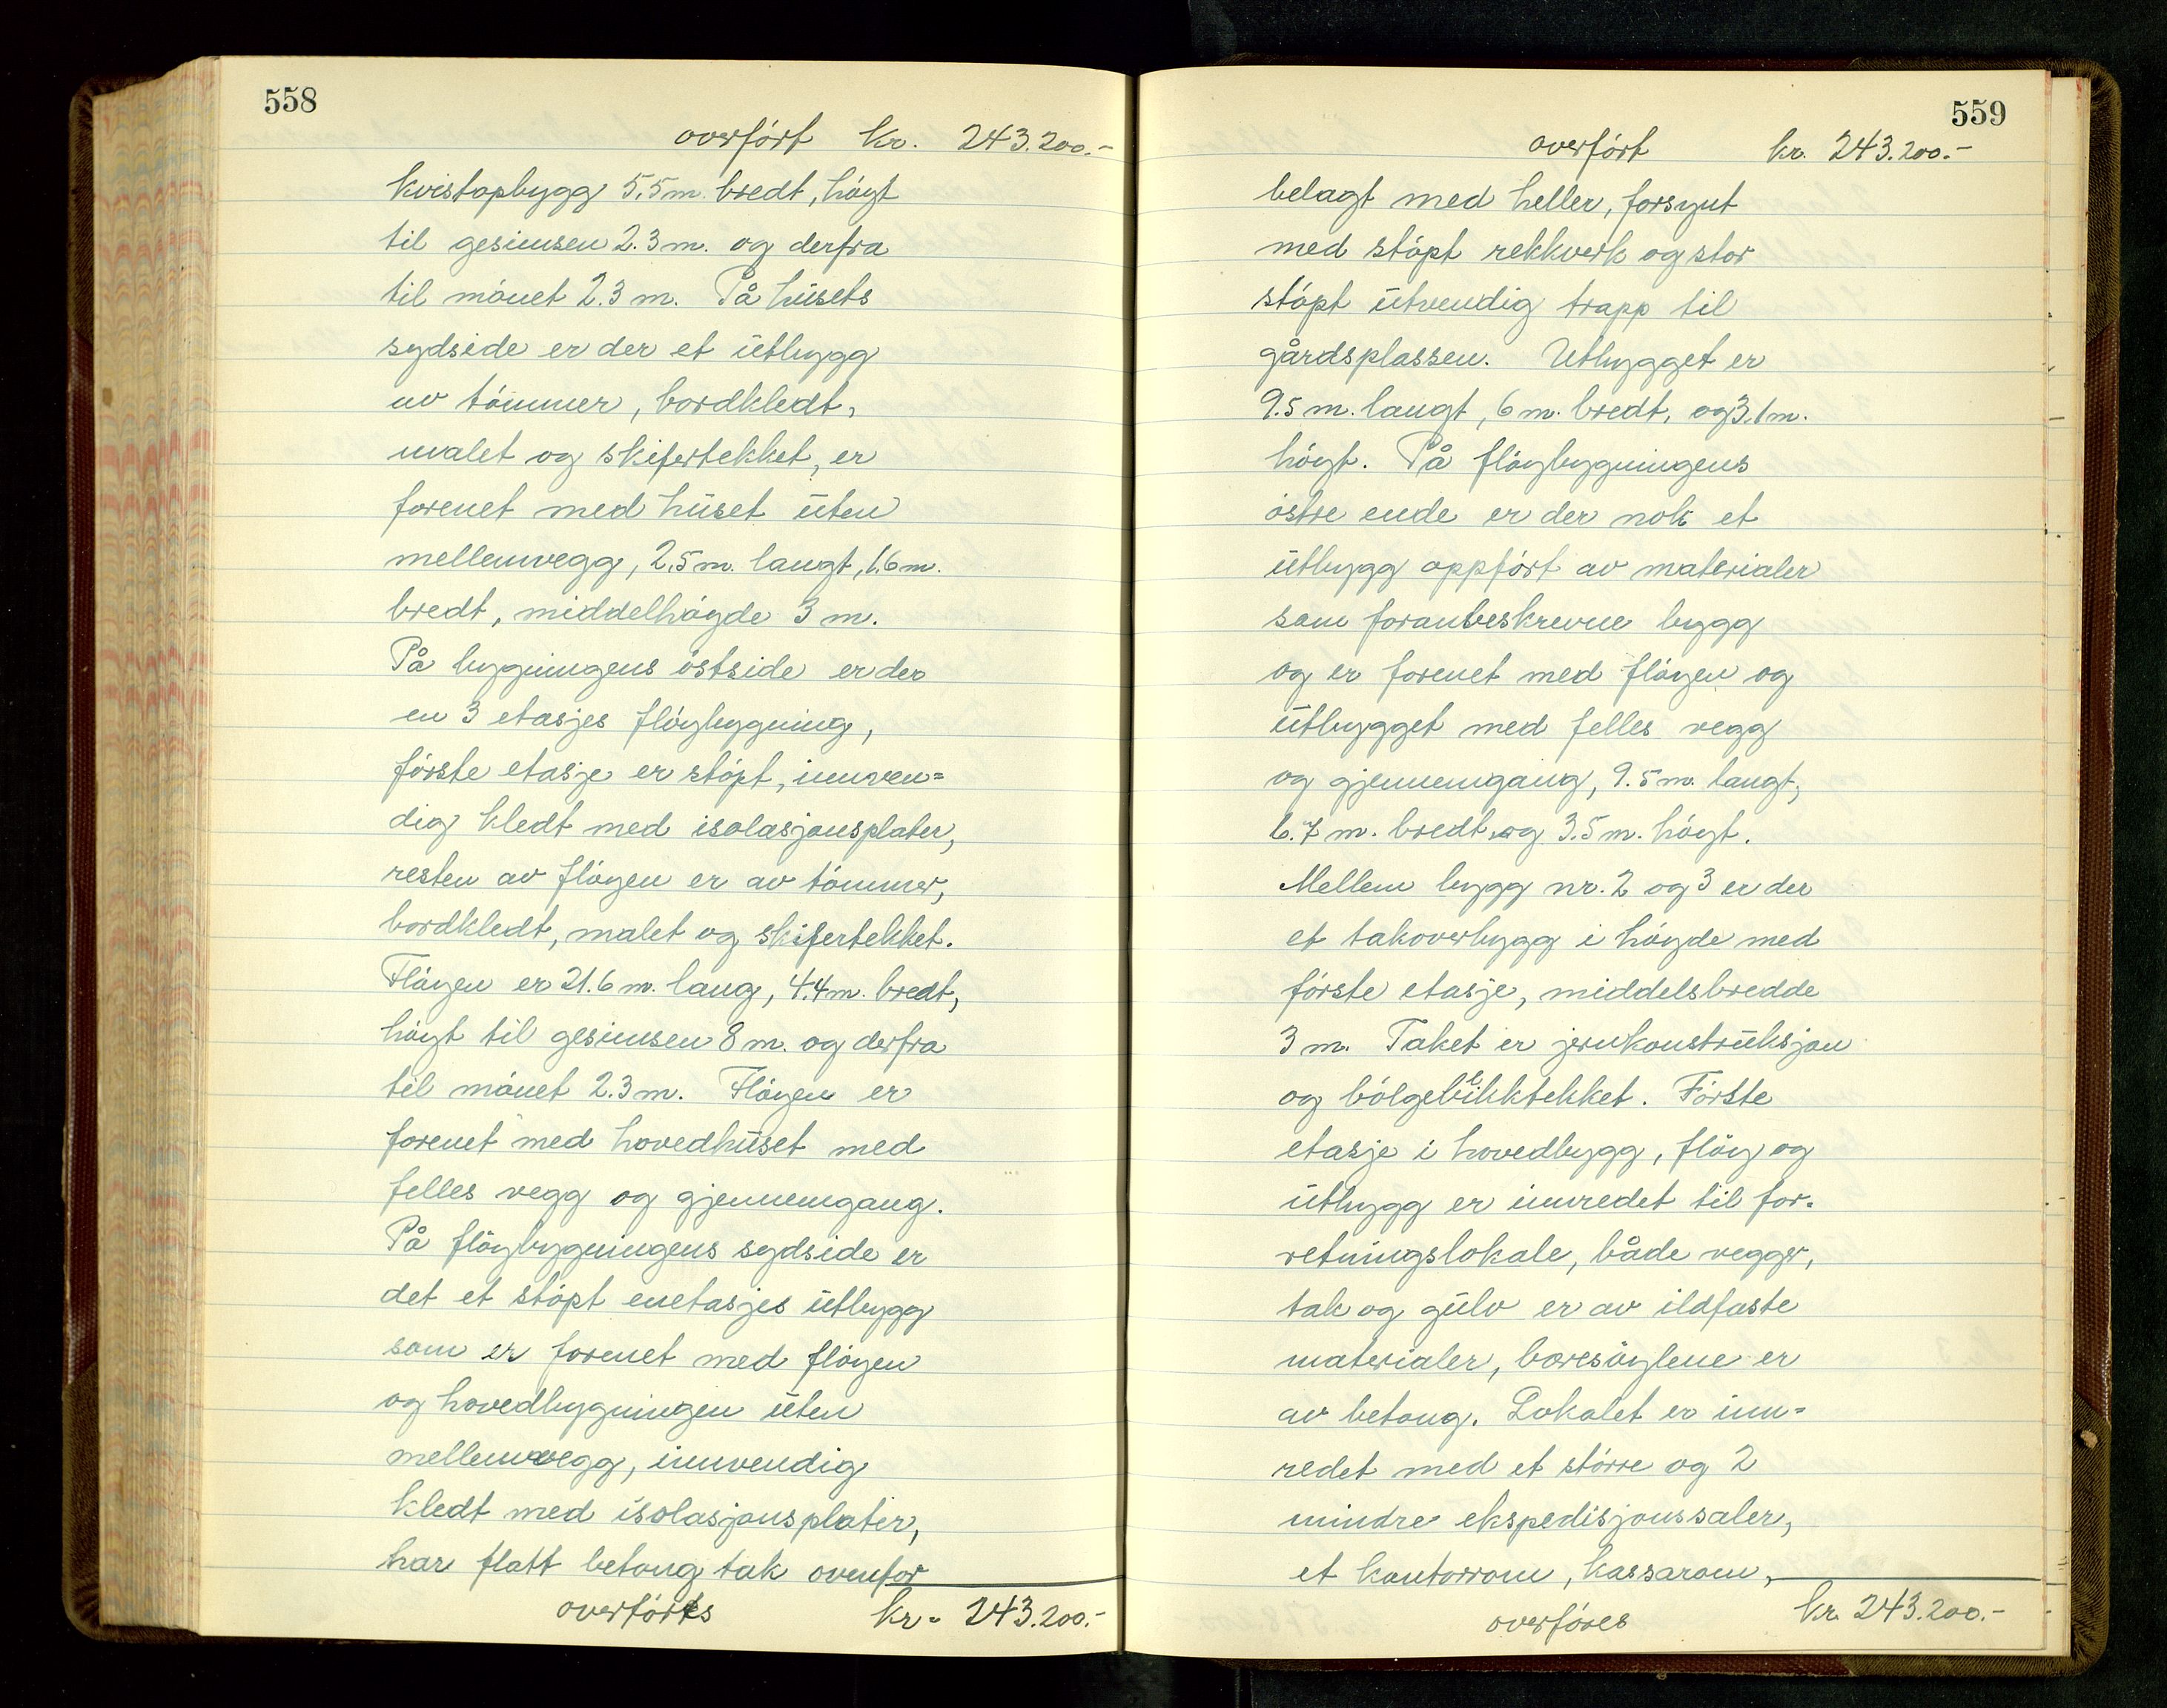 558
overfört kr. 243.200.-
kvistopbygg 5,5 m. bredt, höyt
til gesimsen 2.3 m. og derfra
til mönet 2.3 m. På husets
sydside er der et utbygg
av tömmer, bordkledt,
malet og skifertekket, er
forenet med huset uten
mellemvegg, 2,5 m. langt, 1.6 m.
bredt, middelhöyde 3 m.
På bygningens östside er der
en 3 etasjes flöybygning,
förste etasje er stöpt, innven=
dig kledt med isolasjonsplater,
resten av flöyen er av tömmer,
bordkledt, malet og skifertekket.
Flöyen er 21.6 m. lang, 4.4 m. bredt,
höyt til gesimsen 8 m. og derfra
til mönet 2.3 m. Flöyen er
forenet med hovedhuset med
felles vegg og gjennemgang.
På flöybygningens sydside er
det et stöpt enetasjes utbygg
som er forenet med flöyen
og hovedbygningen uten
mellemvegg, innvendig
kledt med isolasjonsplater,
har flatt betong tak ovenfor
overföres kr. 243.200.-
559
overfört kr. 243.200.-
belagt med heller, forsynt
med stöpt rekkverk og stor
stöpt utvendig trapp til
gårdsplassen. Utbygget er
9.5 m. langt, 6 m. bredt, og 3.1 m.
höyt. På flöybygningens
östre ende er der nok et
utbygg oppfört av materialer
som foranbeskrevne bygg
og er forenet med flöyen og
utbygget med felles vegg
og gjennemgang, 9.5 m. langt,
6.7 m. bredt og 3.5 m. höyt.
Mellem bygg nr. 2 og 3 er der
et takoverbygg i höyde med
förste etasje, middelsbredde
3 m. Taket er jernkonstruksjon
og bölgeblikktekket. Förste
etasje i hovedbygg, flöy og
utbygg er innredet til for-
retningslokale, både vegger,
tak og gulv er av ildfaste
materialer, bæresöylene er
av betong. Lokalet er inn=
redet med et större og 2
mindre ekspedisjonssaler,
et kontorrom, kassarom,
overföres kr. 243.200.-